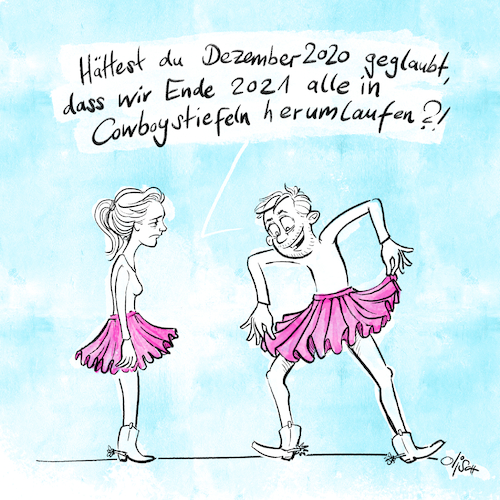 Hättest du Dezember 2020 geglaubt,
dass wir Ende 2021 alle in
Cowboystiefeln herumlaufen?!